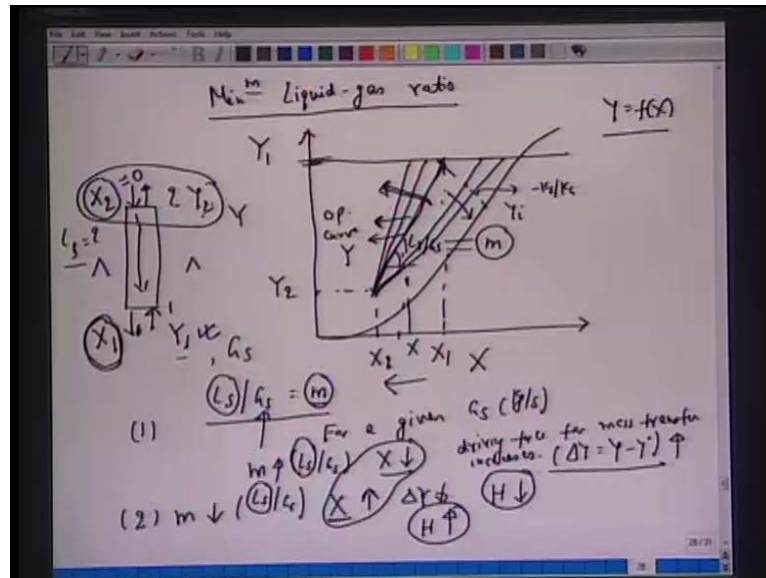 File Edit View Insert Actions Tools Help
Min^m Liquid-gas ratio
Y = f(X)
Y₁
X₂ =0 2 Y₂
Y
-kx/
Yi
op.
curve
Ls=?
Ls/Gs = m
Y
Y₂
X₁
Y₁
, Gs
X₂ X X₁ X
(1) Ls/Gs = m
For a given Gs (kg/s)
m ↑ (Ls/Gs) X ↓
driving-force for mass transfer
increases. (ΔY = Y-Y*) ↑
H ↓
(2) m ↓ (Ls/Gs) X ↑ ΔY ↓
H ↑
28/31
28